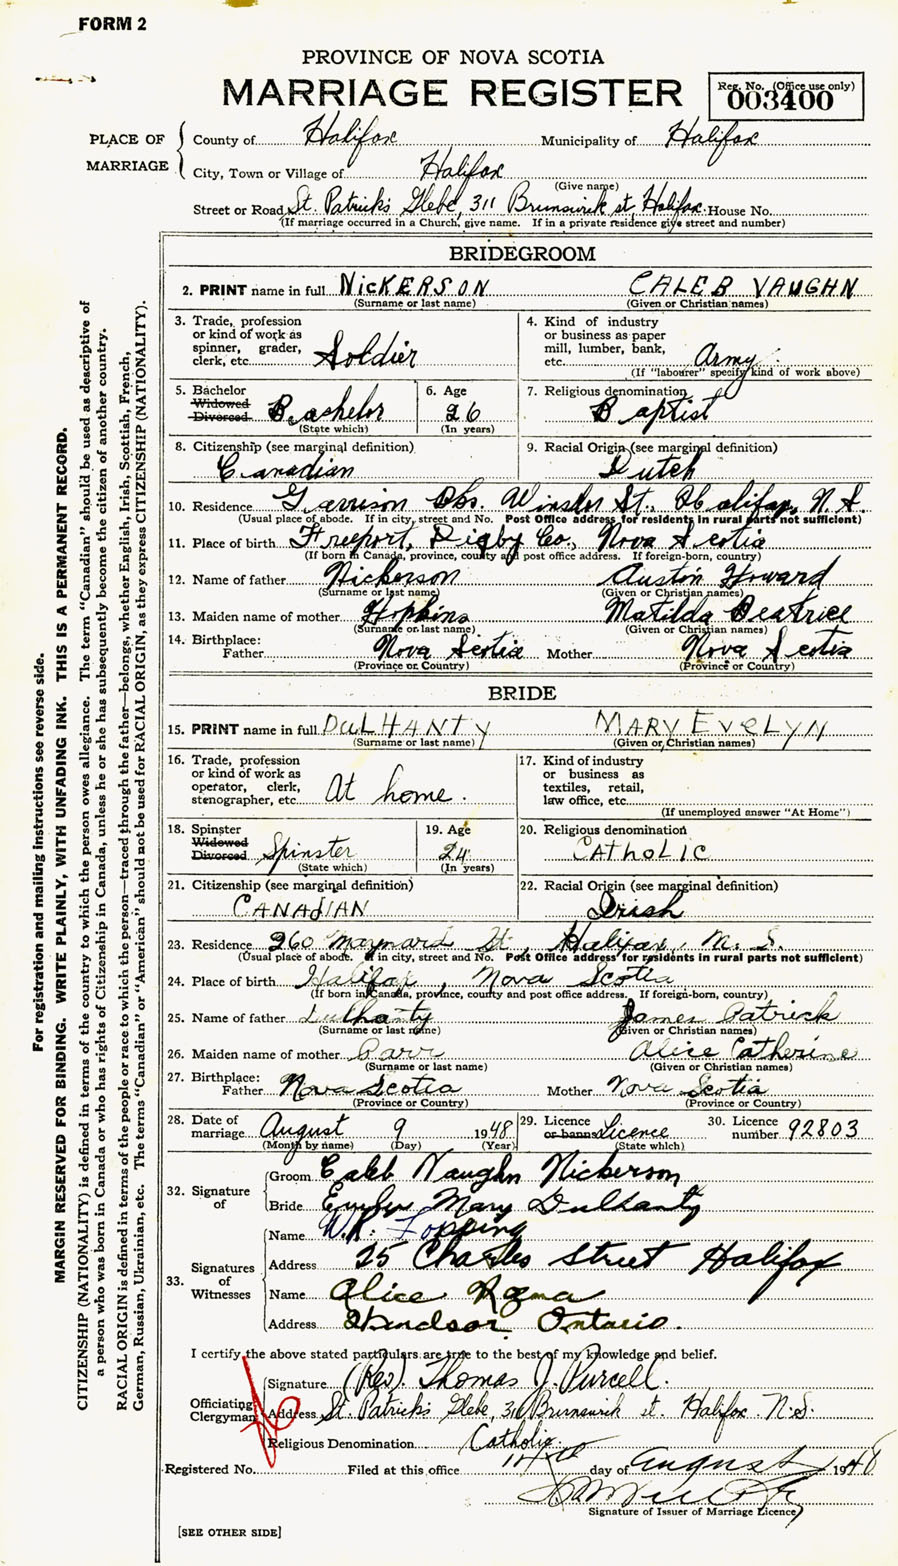 FORM 2
PROVINCE OF NOVA SCOTIA
MARRIAGE REGISTER
Reg. No. (Office use only)
003400
PLACE OF MARRIAGE
County of Halifax Municipality of Halifax
City, Town or Village of Halifax
(Give name)
Street or Road St. Patrick's Glebe, 311 Brunswick st Halifax House No.
(If marriage occurred in a Church, give name. If in a private residence give street and number)
BRIDEGROOM
2. PRINT name in full NICKERSON CALEB VAUGHN
(Surname or last name) (Given or Christian names)
3. Trade, profession or kind of work as spinner, grader, clerk, etc. Soldier
4. Kind of industry or business as paper mill, lumber, bank, etc. Army
(If "labourer" specify kind of work above)
5. Bachelor Widowed Divorced Bachelor
(State which)
6. Age 26
(In years)
7. Religious denomination Baptist
8. Citizenship (see marginal definition) Canadian
9. Racial Origin (see marginal definition) Dutch
10. Residence Garrison Obs. Winslow St., Halifax, N.S.
(Usual place of abode. If in city, street and No. Post Office address for residents in rural parts not sufficient)
11. Place of birth Freeport, Digby Co., Nova Scotia
(If born in Canada, province, county and post office address. If foreign-born, country)
12. Name of father Nickerson Austin Howard
(Surname or last name) (Given or Christian names)
13. Maiden name of mother Hopkins Matilda Beatrice
(Surname or last name) (Given or Christian names)
14. Birthplace: Father Nova Scotia Mother Nova Scotia
(Province or Country) (Province or Country)
BRIDE
15. PRINT name in full DULHANTY MARY EVELYN
(Surname or last name) (Given or Christian names)
16. Trade, profession or kind of work as operator, clerk, stenographer, etc. At home.
17. Kind of industry or business as textiles, retail, law office, etc.
(If unemployed answer "At Home")
18. Spinster Widowed Divorced Spinster
(State which)
19. Age 24
(In years)
20. Religious denomination CATHOLIC
21. Citizenship (see marginal definition) CANADIAN
22. Racial Origin (see marginal definition) Irish
23. Residence 260 Maynard St, Halifax, N.S.
(Usual place of abode. If in city, street and No. Post Office address for residents in rural parts not sufficient)
24. Place of birth Halifax, Nova Scotia
(If born in Canada, province, county and post office address. If foreign-born, country)
25. Name of father Dulhanty James Patrick
(Surname or last name) (Given or Christian names)
26. Maiden name of mother Carr Alice Catherine
(Surname or last name) (Given or Christian names)
27. Birthplace: Father Nova Scotia Mother Nova Scotia
(Province or Country) (Province or Country)
28. Date of marriage August 9 1948
(Month by name) (Day) (Year)
29. Licence or banns Licence
(State which)
30. Licence number 92803
32. Signature of
Groom Caleb Vaughn Nickerson
Bride Evelyn Mary Dulhanty
33. Signatures of Witnesses
Name W.R. Topping
Address 25 Charles Street Halifax
Name Alice
Address Windsor Ontario.
I certify the above stated particulars are true to the best of my knowledge and belief.
Officiating Clergyman
Signature (Rev). Thomas J. Purcell.
Address St. Patrick's Glebe, 311 Brunswick st. Halifax N.S.
Religious Denomination Catholic.
Registered No. Filed at this office 14th day of August 1948
Signature of Issuer of Marriage Licence
[SEE OTHER SIDE]
For registration and mailing instructions see reverse side.
MARGIN RESERVED FOR BINDING. WRITE PLAINLY, WITH UNFADING INK. THIS IS A PERMANENT RECORD.
CITIZENSHIP (NATIONALITY) is defined in terms of the country to which the person owes allegiance. The term "Canadian" should be used as descriptive of
a person who was born in Canada or who has rights of Citizenship in Canada, unless he or she has subsequently become the citizen of another country.
RACIAL ORIGIN is defined in terms of the people or race to which the person—traced through the father—belongs, whether English, Irish, Scottish, French,
German, Russian, Ukrainian, etc. The terms "Canadian" or "American" should not be used for RACIAL ORIGIN, as they express CITIZENSHIP (NATIONALITY).